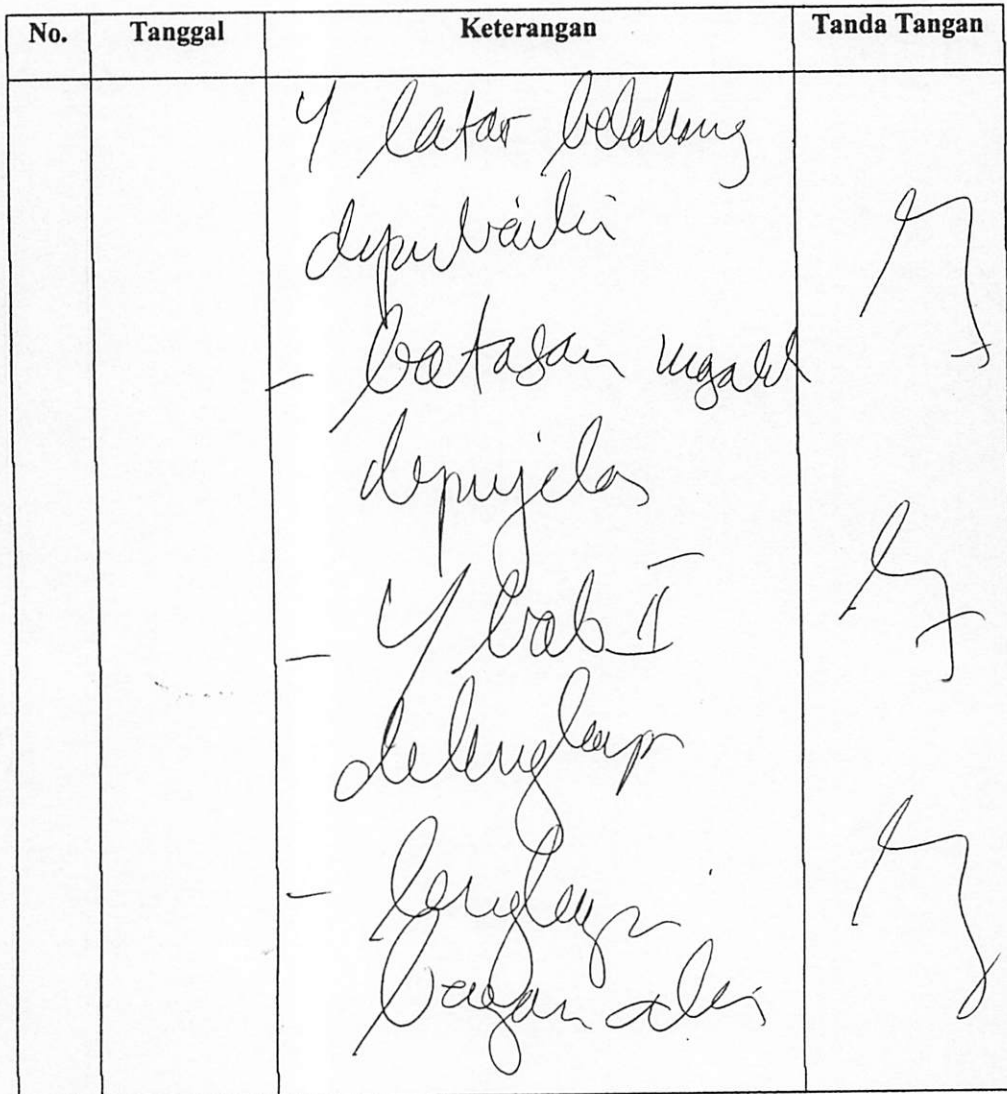 No. Tanggal Keterangan Tanda Tangan
latar belakang
diperbaiki
- batasan masalah
diperjelas
- bab II
dilengkapi
- lengkapi
bagan alir